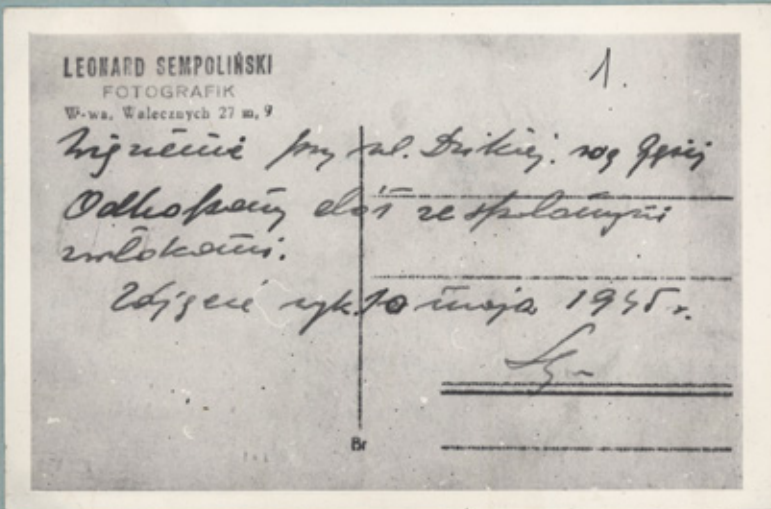 1.
LEONARD SEMPOLIŃSKI
FOTOGRAFIK
W-wa, Walecznych 27 m. 9
Więzienie przy ul. Dzikiej. róg Gęsiej
Odkopany dół ze spalonymi
zwłokami.
Zdjęcie wyk. 10 maja 1945 r.
Br